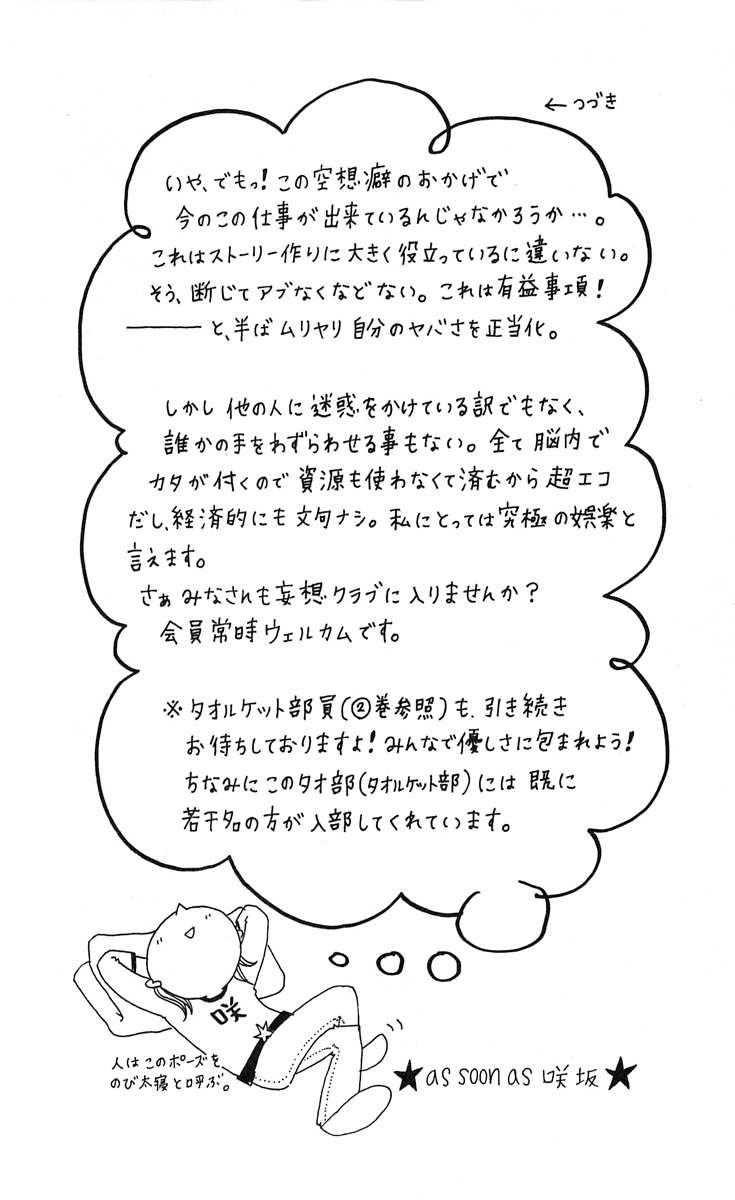 ←つづき
いや、でもっ！この空想癖のおかげで
今のこの仕事が出来ているんじゃなかろうか…。
これはストーリー作りに大きく役立っているに違いない。
そう、断じてアブなくなどない。これは有益事項！
――――と、半ばムリヤリ自分のヤバさを正当化。
しかし他の人に迷惑をかけている訳でもなく、
誰かの手をわずらわせる事もない。全て脳内で
カタが付くので資源も使わなくて済むから超エコ
だし、経済的にも文句ナシ。私にとっては究極の娯楽と
言えます。
さぁみなさんも妄想クラブに入りませんか？
会員常時ウェルカムです。
※タオルケット部員（②巻参照）も、引き続き
お待ちしておりますよ！みんなで優しさに包まれよう！
ちなみにこのタオ部（タオルケット部）には既に
若干名の方が入部してくれています。
咲
人はこのポーズを
のび太寝と呼ぶ。
★as soon as 咲坂★